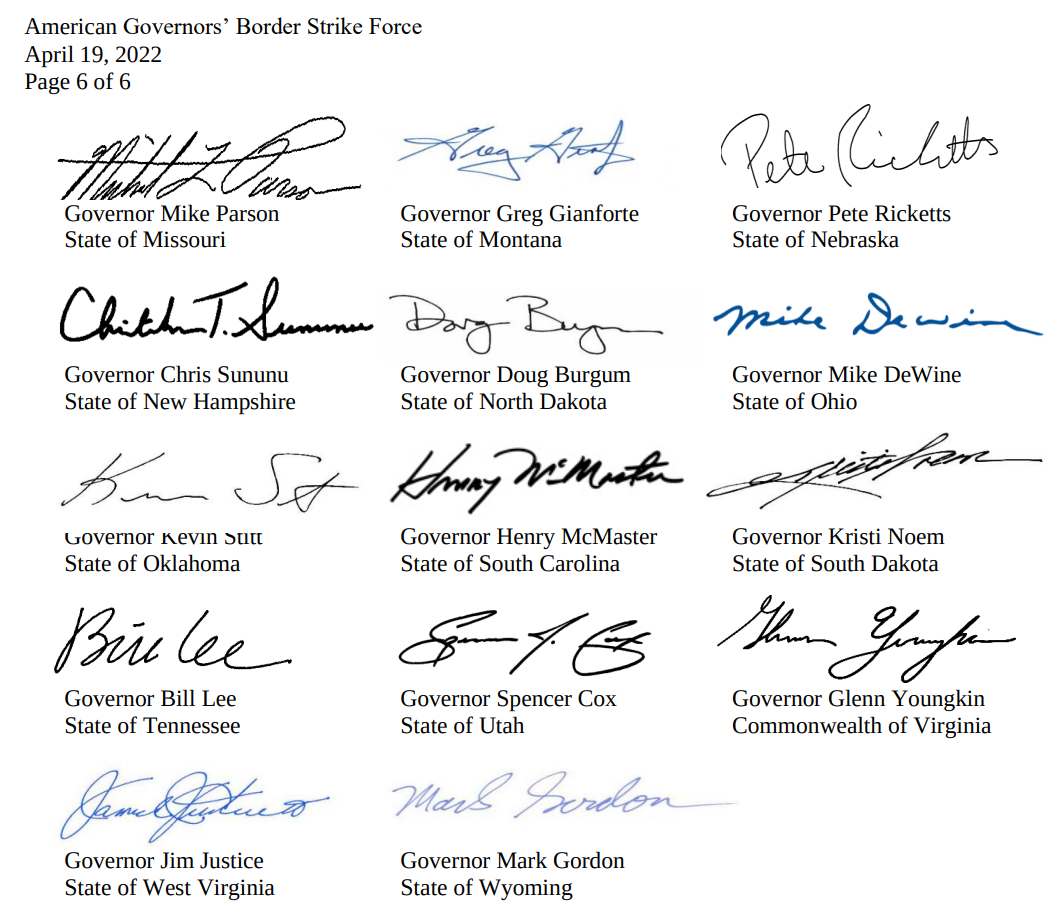 American Governors’ Border Strike Force
April 19, 2022
Page 6 of 6
Greg
Pete Ricketts
Governor Mike Parson
Governor Greg Gianforte
Governor Pete Ricketts
State of Missouri
State of Montana
State of Nebraska
Doug
Mike DeWine
Governor Chris Sununu
Governor Doug Burgum
Governor Mike DeWine
State of New Hampshire
State of North Dakota
State of Ohio
Henry McMaster
Governor Kevin Stitt
Governor Henry McMaster
Governor Kristi Noem
State of Oklahoma
State of South Carolina
State of South Dakota
Bill Lee
Governor Bill Lee
Governor Spencer Cox
Governor Glenn Youngkin
State of Tennessee
State of Utah
Commonwealth of Virginia
Mark Gordon
Governor Jim Justice
Governor Mark Gordon
State of West Virginia
State of Wyoming